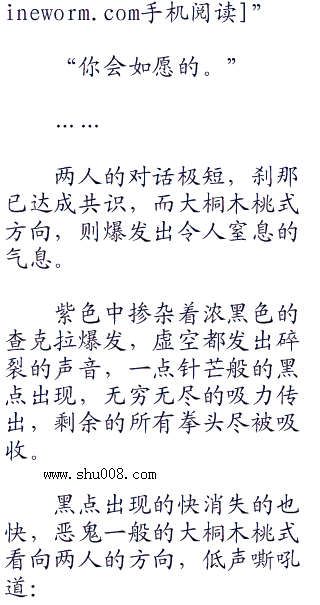 ineworm.com手机阅读]”
“你会如愿的。”
……
两人的对话极短，刹那
已达成共识，而大桐木桃式
方向，则爆发出令人窒息的
气息。
紫色中掺杂着浓黑色的
查克拉爆发，虚空都发出碎
裂的声音，一点针芒般的黑
点出现，无穷无尽的吸力传
出，剩余的所有拳头尽被吸
收。
www.shu008.com
黑点出现的快消失的也
快，恶鬼一般的大桐木桃式
看向两人的方向，低声嘶吼
道：